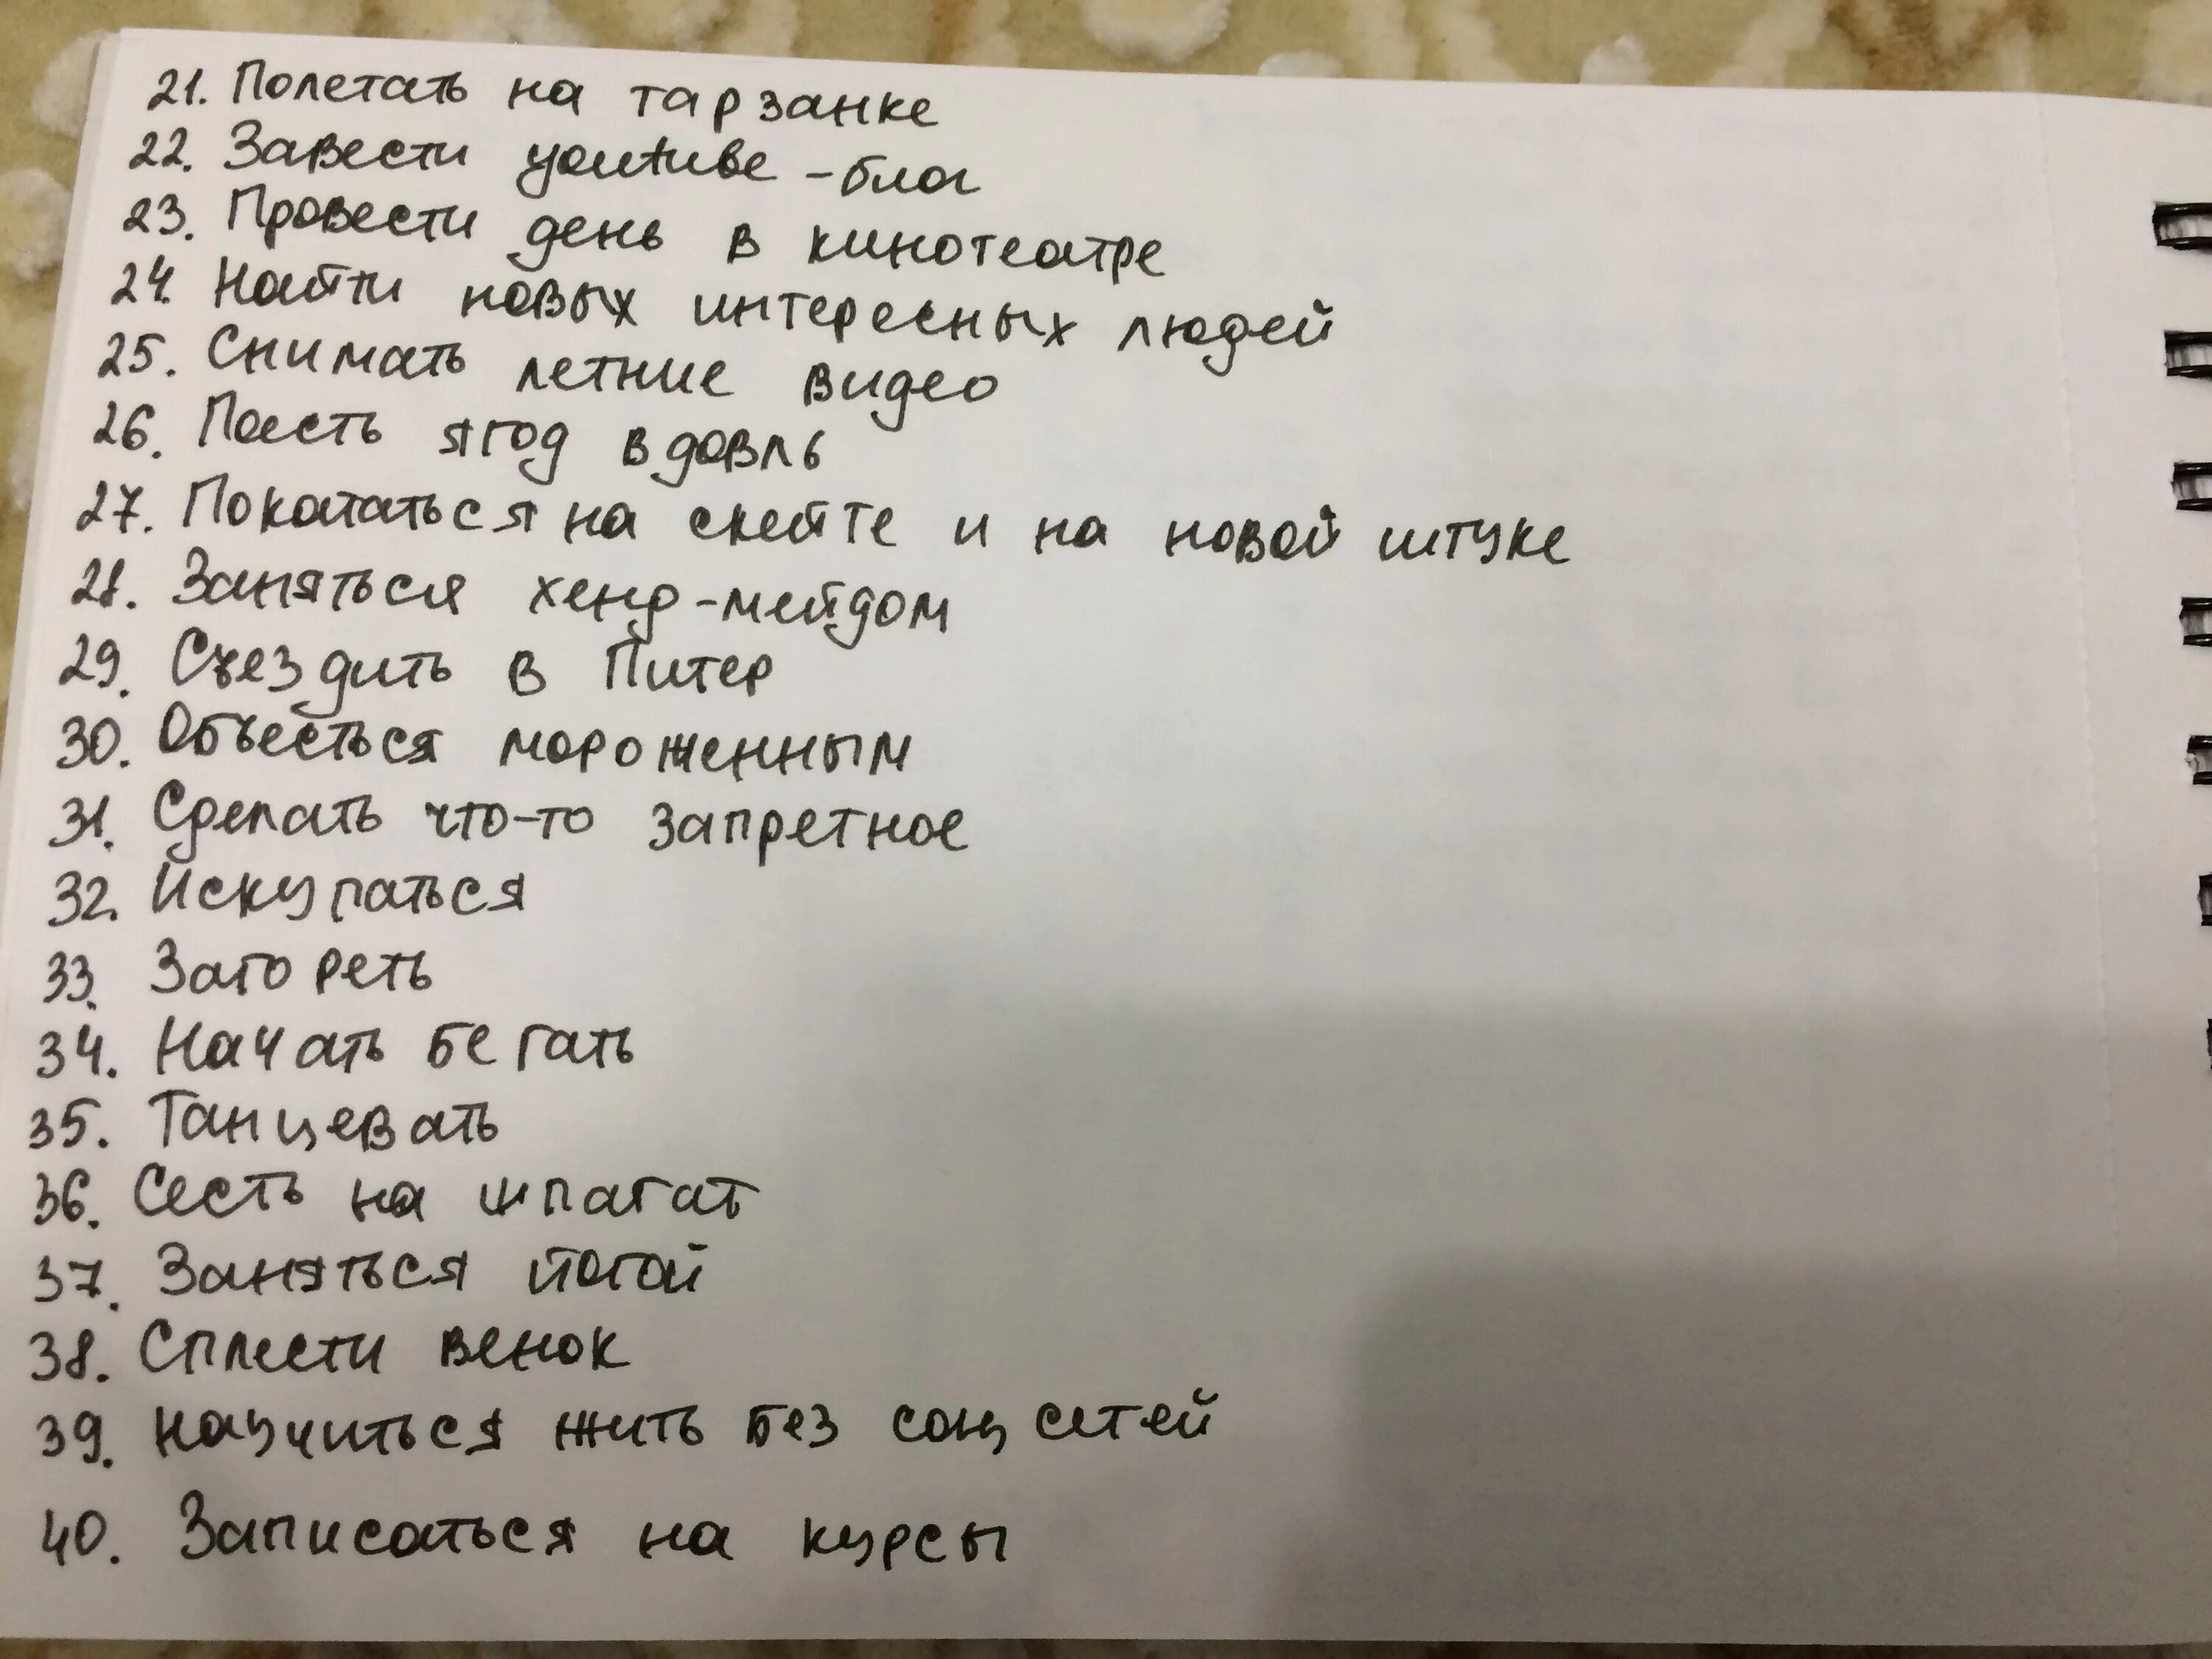 21. Полетать на тарзанке
22. Завести youtube-блог
23. Провести день в кинотеатре
24. Найти новых интересных людей
25. Снимать летние видео
26. Поесть ягод вдовль
27. Покататься на скейте и на новой штуке
28. Заняться хенд-мейдом
29. Съездить в Питер
30. Объесться мороженным
31. Сделать что-то запретное
32. Искупаться
33. Загореть
34. Начать бегать
35. Танцевать
36. Сесть на шпагат
37. Заняться йогой
38. Сплести венок
39. Научиться жить без соц сетей
40. Записаться на курсы